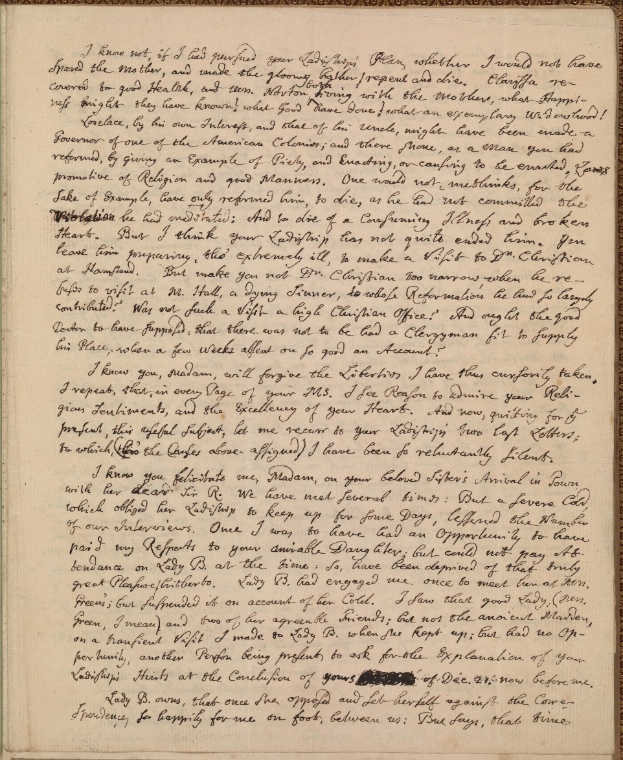 I know not, if I had pursued your Ladiship's Plan, whether I would not have
spared the Mother, and made the gloomy Father repent and die. Clarissa re-
covered to good Health, and Mrs. Norton both living with the Mothers, what Happi-
ness might they have known! what Good have done! what an exemplary Widowhood!
Lovelace, by his own Interest, and that of his Uncle, might have been made a
Governor of one of the American Colonies; and there shone, as a Man you had
reformed, by giving an Example of Piety, and Enacting, or causing to be enacted, Laws
promotive of Religion and good Manners. One would not, methinks, for the
sake of Example, have only reformed him, to die, as he had not committed the
Violation he had meditated; And to die of a Consuming Illness and broken
Heart. But I think your Ladiship has not quite ended him. You
leave him preparing, tho' extremely ill, to make a Visit to Dr. Christian
at Hamstead. But make you not Dr. Christian too narrow when he re-
fuses to visit at M. Hall, a dying Sinner, to whose Reformation he had so largely
contributed? Was not such a Visit a high Christian Office? And ought the good
Doctor to have supposed, that there was not to be had a Clergyman fit to supply
his Place, when a few Weeks absent on so good an Account?
I know you, Madam, will forgive the Liberties I have thus cursorily taken.
I repeat, that, in every Page of your MS. I see Reason to admire your Reli-
gious Sentiments, and the Excellency of your Heart. And now, quitting for ye
present, this useful Subject, let me recur to your Ladiship's two last Letters;
to which, (thro' the Causes above-assigned) I have been so reluctantly silent.
I know you felicitate me, Madam, on your beloved Sister's Arrival in Town
with her dear Sir R. We have met several times: But a severe Cold
which obliged her Ladiship to keep up for some Days, lessened the Number
of our Interviews. Once I was to have had an Opportunity to have
paid my Respects to your amiable Daughters; but could not pay At-
tendance on Lady B. at the time: So, have been deprived of that truly
great Pleasure hitherto. Lady B. had engaged me once to meet her at Mrs.
Green's; but suspended it on account of her Cold. I saw that good Lady, (Mrs.
Green, I mean) and two of her agreeable Friends; but not the ancient Maiden,
on a transient Visit I made to Lady B. when she kept up; but had no Op-
portunity, another Person being present, to ask for the Explanation of your
Ladiship's Hints at the Conclusion of yours of Dec. 21. now before me.
Lady B. owns, that once she opposed and set herself against the Corre-
spondence, so happily for me on foot, between us: But says, that time